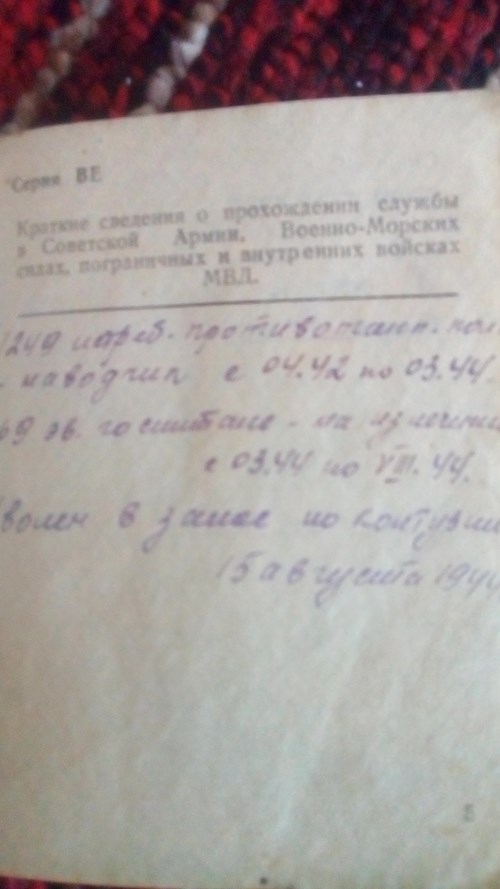 Серия ВЕ
Краткие сведения о прохождении службы
в Советской Армии, Военно-Морских
силах, пограничных и внутренних войсках
МВД.
противотанк. пол
наводчик с 04.42 по 03.44.
69 эв. госпитале - на излечении
с 03.44 по VIII. 44.
волен в запас по контузии
15 августа 1944
5